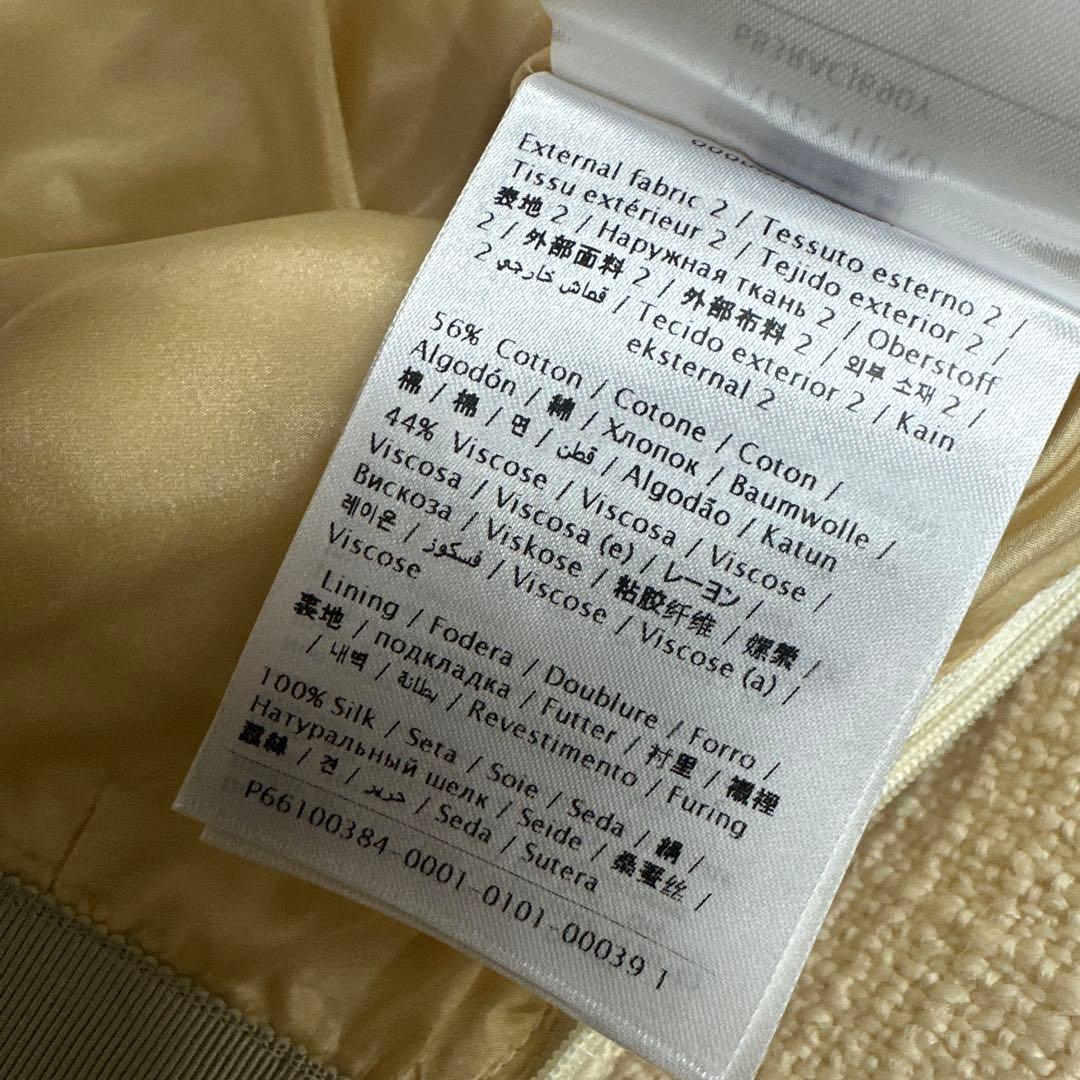 External fabric 2 / Tessuto esterno 2 /
Tissu extérieur 2 / Tejido exterior 2 /
表地 2 / Наружная ткань 2 / Oberstoff
2 / 外部面料 2 / 外部布料 2 / 외부 소재 2 /
قماش خارجي 2 / Tecido exterior 2 / Kain
eksternal 2
56% Cotton / Cotone / Coton /
Algodón / 綿 / Хлопок / Baumwolle /
棉 / 棉 / 면 / قطن / Algodão / Katun
44% Viscose / Viscosa / Viscose /
Viscosa / Viscosa (e) / レーヨン /
Вискоза / Viskose / 粘胶纤维 / 嫘縈 /
레이온 / فسكوز / Viscose / Viscose (a) /
Viscose
Lining / Fodera / Doublure / Forro /
裏地 / подкладка / Futter / 衬里 / 襯裡
/ 내벽 / بطانة / Revestimento / Furing
100% Silk / Seta / Soie / Seda / 絹 /
Натуральный шелк / Seide / 桑蚕丝 /
蠶絲 / 견 / حرير / Seda / Sutera
P66100384-0001-0101-00039 1